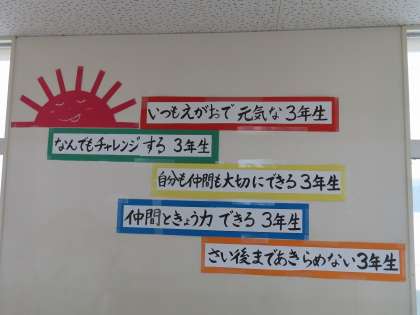 いつもえがおで 元気な 3年生
なんでもチャレンジする 3年生
自分も仲間も大切にできる3年生
仲間ときょう力 できる 3年生
さい後まであきらめない3年生